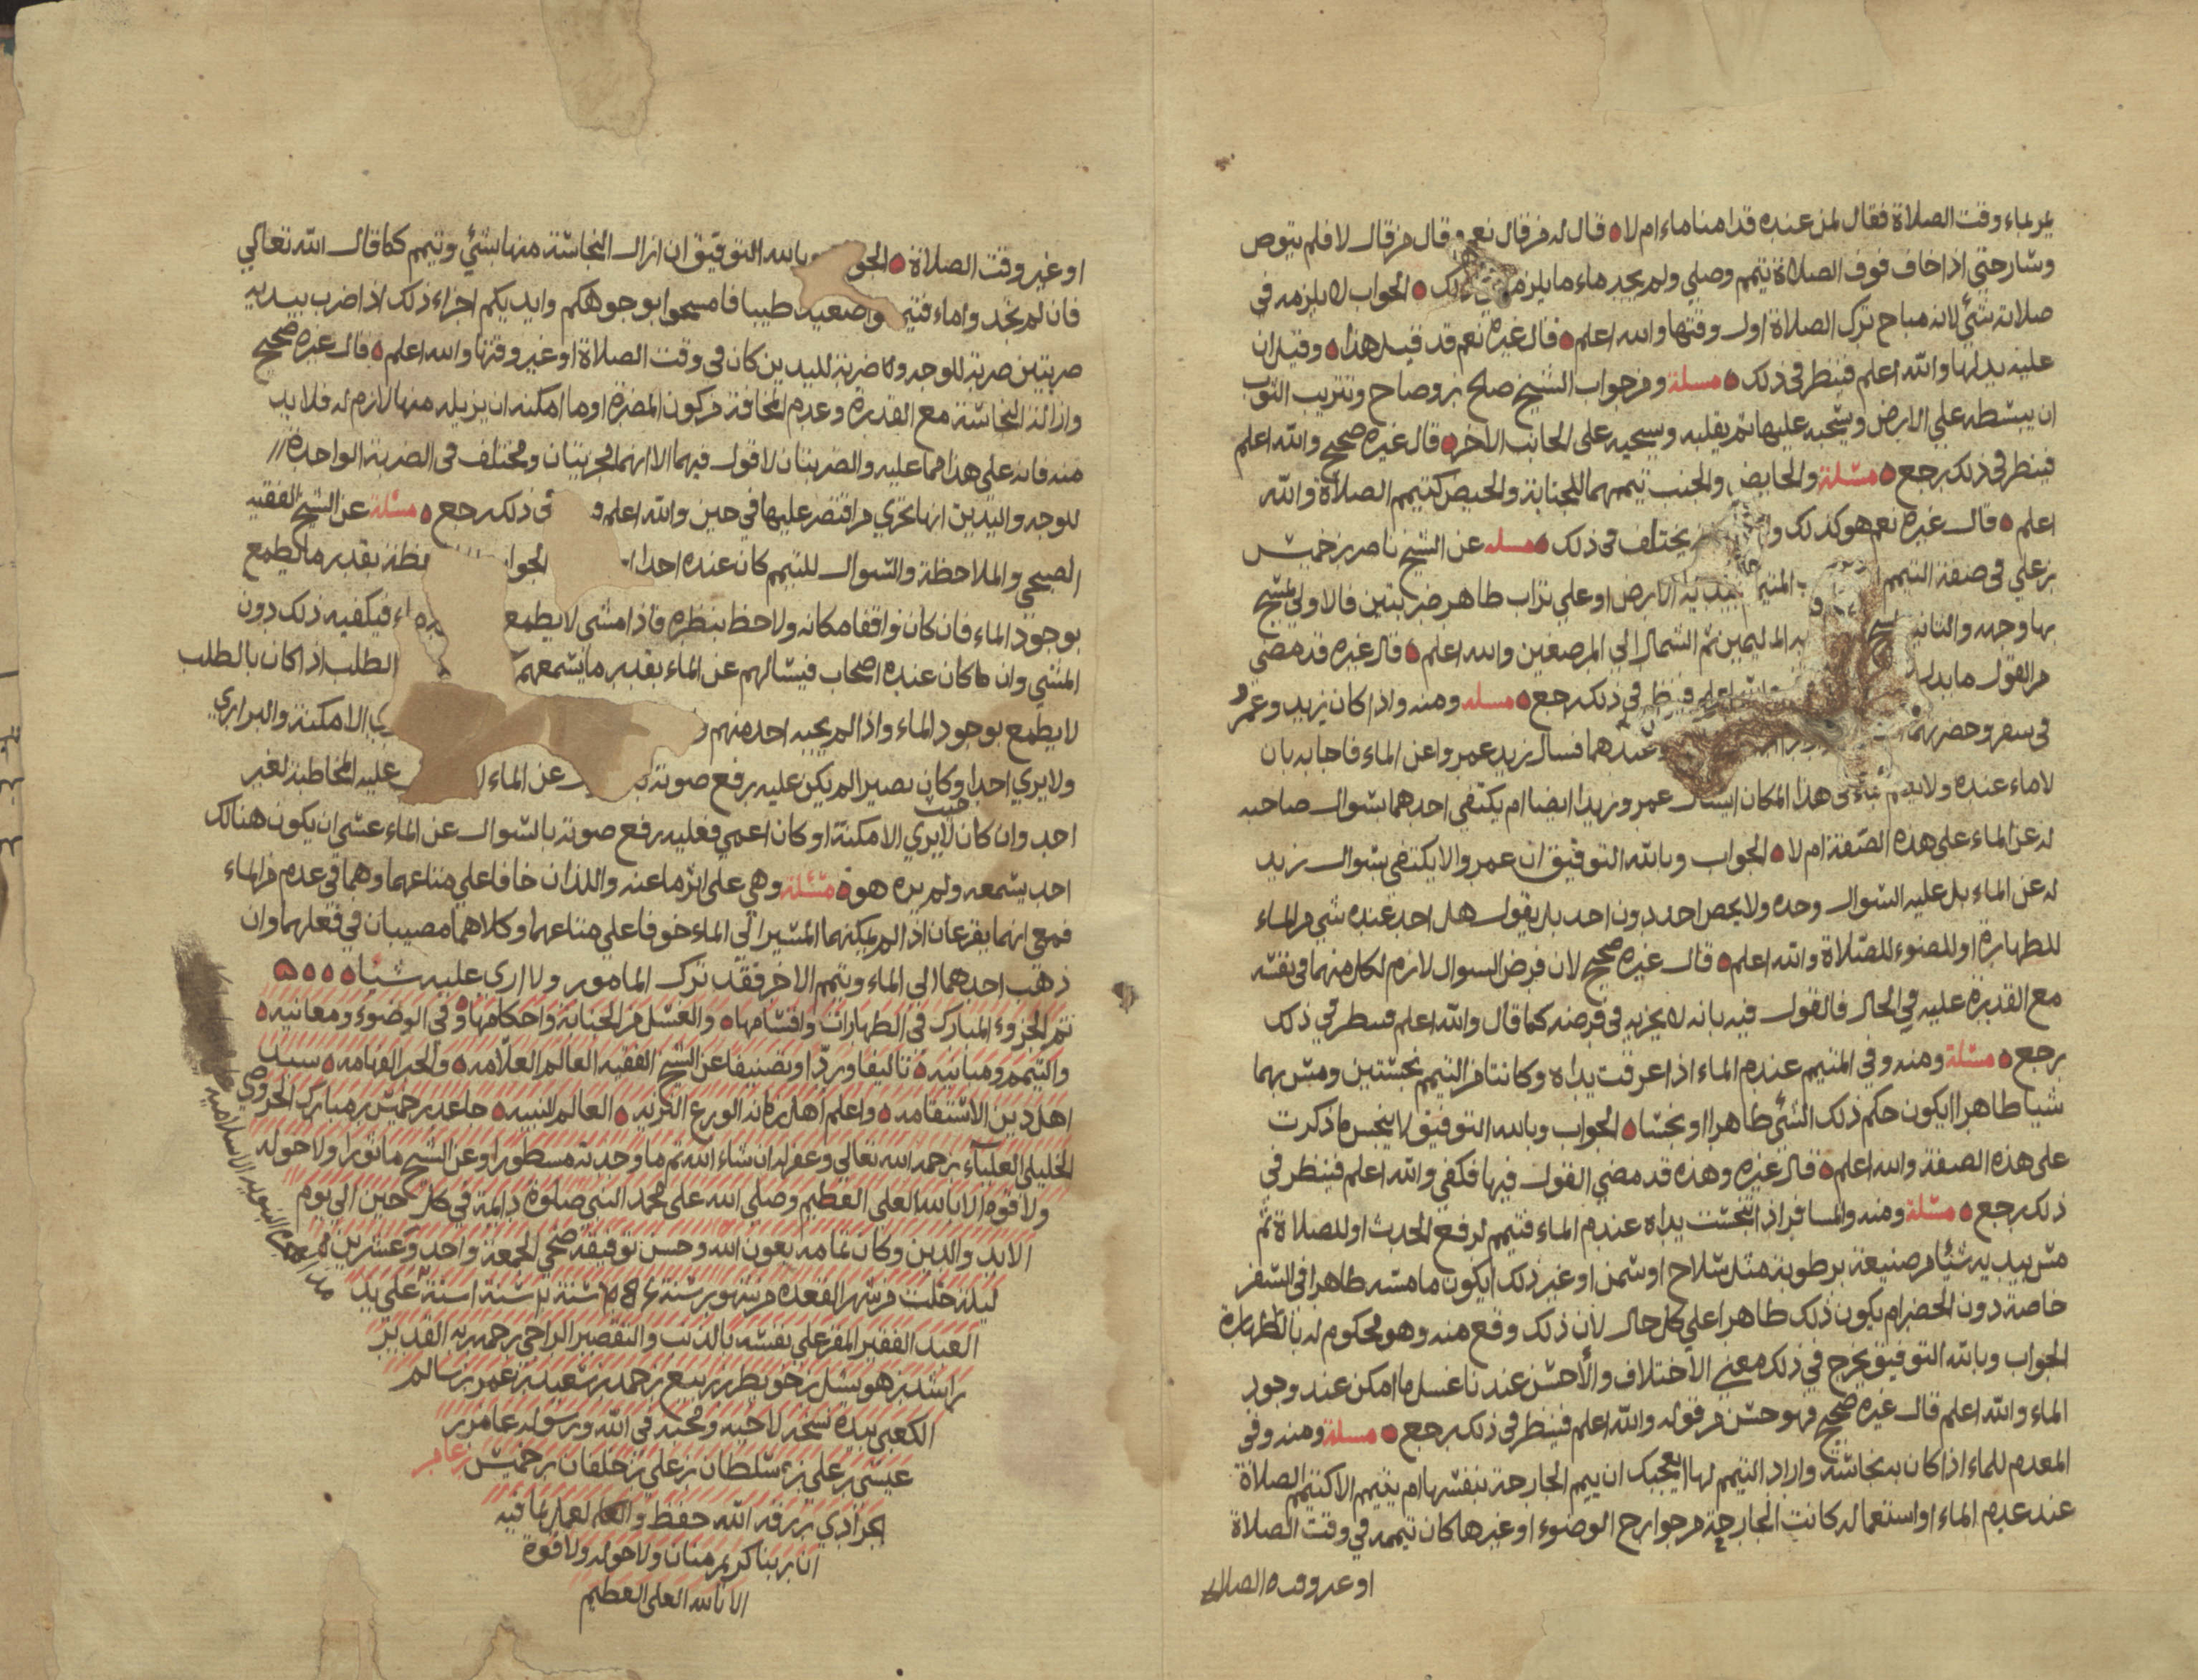 يمر بماء وقت الصلاة فقال لمن عنده قدامنا ماء ام لا ه قال له من قال نعم وقال من قال لا فلم يتوض
وسار حتى اذا خاف فوت الصلاة تيمم وصلى ولم يجد ماء ما يلزمه ذلك ه الجواب لا يلزمه في
صلاته شئ لانه مباح ترك الصلاة اول وقتها والله اعلم ه قال غيره نعم قد قيل هذا ه وقيل ان
عليه بدلها والله اعلم فينظر في ذلك ه مسلة ومن جواب الشيخ صلح بن وضاح وتتريب الثوب
ان يبسطه على الارض ويسحبه عليها ثم يقلبه ويسحبه على الجانب الاخر ه قال غيره صحيح والله اعلم
فينظر في ذلك رجع ه مسئلة والحايض والجنب تيممهما للجنابة والحيض كتيمم الصلاة والله
اعلم ه قال غيره نعم هو كذلك يختلف في ذلك ه مسلة عن الشيخ ناصر بن خميس
بن علي في صفة التيمم المتيمم بيديه الارض او على تراب طاهر ضربتين فالاولى يمسح
بها وجهه والثانيه يمسح اليمين ثم الشمال الى الرصغين والله اعلم ه قال غيره قد مضى
من القول ما يدل والله اعلم فينظر في ذلك رجع ه مسلة ومنه واذا كان زيد وعمرو
في سفر وحضرتهما وعندهما فسال زيد عمروا عن الماء فاجابه بان
لا ماء عنده ولا يعلم بماء في هذا المكان ايسال عمرو زيدا ايضا ام يكتفي احدهما بسوال صاحبه
له عن الماء على هذه الصفة ام لا ه الجواب وبالله التوفيق ان عمروا لا يكتفي بسوال زيد
له عن الماء بل عليه السوال وحده ولا يخص احد دون احد بل يقول هل احد عنده شي من الماء
للطهارة او للوضوء للصلاة والله اعلم ه قال غيره صحيح لان فرض السوال لازم لكل منهما في نفسه
مع القدرة عليه في الحال فالقول فيه بانه لا يجزيه في فرضه كما قال والله اعلم فينظر في ذلك
رجع ه مسئلة ومنه وفي المتيمم عند عدم الماء اذا عرقت يداه وكانتا من التيمم نجستين ومس بهما
شيا طاهرا ايكون حكم ذلك الشئ طاهرا او نجسا ه الجواب وبالله التوفيق لا ينجس ما ذكرت
على هذه الصفة والله اعلم ه قال غيره وهذه قد مضى القول فيها فكفى والله اعلم فينظر في
ذلك رجع ه مسئلة ومنه والمسافر اذا تنجست يداه عند عدم الماء فتيمم لرفع الحدث او للصلاة ثم
مس بيديه شيئا من صنيعة برطوبة مثل سلاح او سمن او غير ذلك ايكون ما مسه طاهرا في السفر
خاصة دون الحضر ام يكون ذلك طاهرا على كل حال لان ذلك وقع منه وهو محكوم له بالطهارة
الجواب وبالله التوفيق يخرج في ذلك معنى الاختلاف والأحسن عندنا غسل ما امكن عند وجود
الماء والله اعلم قال غيره صحيح فهو حسن من قوله والله اعلم فينظر في ذلك رجع ه مسلة ومنه وفي
المعدم للماء اذا كان به نجاسة واراد التيمم لها ايعجبك ان ييمم الجارحة بنفسها ام يتيمم الا كتيمم الصلاة
عند عدم الماء او استعماله كانت الجارحة من جوارح الوضوء او غيرها كان تيممه في وقت الصلاة
او غير وقت الصلاة
او غير وقت الصلاة ه الجواب وبالله التوفيق ان ازال النجاسة منها بشئ وتيمم كما قال الله تعالى
فان لم تجدوا ماء فتيمموا صعيدا طيبا فامسحوا بوجوهكم وايديكم اجزاه ذلك اذا ضرب بيديه
ضربتين ضربة للوجه وضربة لليدين كان في وقت الصلاة او غير وقتها والله اعلم ه قال غيره صحيح
وازالة النجاسة مع القدرة وعدم المخافة من كون المضرة او ما امكنه ان يزيله منها لازم له فلا بد
منه فانه على هذا مما عليه والضربتان لا قول فيهما الا انهما مجزيتان ومختلف في الضربة الواحدة
للوجه واليدين انها تجزي من اقتصر عليها في حين والله اعلم في ذلك رجع ه مسئلة عن الشيخ الفقيه
الصبحي والملاحظة والسوال للتيمم كان عنده احدا الجواب بقدر ما يطمع
بوجود الماء فان كان واقفا مكانه ولاحظ بنظره فاذا مشى لا يطمع فيكفيه ذلك دون
المشي وان كان عنده اصحاب فيسالهم عن الماء بقدر ما يسمعهم الطلب اذا كان بالطلب
لا يطمع بوجود الماء واذا لم يجبه احد منهم الامكنة والبراري
ولا يرى احدا وكان بصيرا لم يكن عليه رفع صوته عن الماء عليه المخاطبة لغير
احد وان كان حيث لا يرى الامكنة او كان اعمى فعليه رفع صوته بالسوال عن الماء عسى ان يكون هنالك
احد يسمعه ولم يره هو ه مسئلة وهي على اثر ما عنه واللذان خافا على متاعهما وهما في عدم من الماء
فمعي انهما يقرعان اذا لم يمكنهما المسير الى الماء خوفا على متاعهما وكلاهما مصيبان في فعلهما وان
ذهب احدهما الى الماء وتيمم الاخر فقد ترك المامور ولا ارى عليه شيئا ه ه ه ه
تم الجزوء المبارك في الطهارات واقسامها ه والغسل من الجنابة واحكامها ه وفي الوضوء ومعانيه ه
والتيمم ومبانيه ه تاليفا وردا وتصنيفا عن الشيخ الفقيه العالم العلامه ه والحبر الفهامه ه سيد
اهل دين الاستقامه ه واعلم اهل زمانه الورع النزيه ه العالم النبيه ه جاعد بن خميس بن مبارك الخروصي
الخليلي العلياء رحمه الله تعالى وغفر له ان شاء الله تم ما وجدته مسطورا وعن الشيخ ماثورا ولا حول
ولا قوة الا بالله العلي العظيم وصلى الله على محمد النبي صلوة دايمة في كل حين الى يوم
الابد والدين وكان تمامه بعون الله وحسن توفيقه ضحى الجمعة واحد وعشرين
ليلة خلت من شهر القعده من شهور سنة سنة علي يد
العبد الفقير المقر على نفسه بالذنب والتقصير الراجي رحمة ربه القدير
راشد بن هويشل بن خويطر بن ربيع بن حمد بن سعيد بن عمر بن سالم
الكعبي بيده نسخه لاخيه ومحبه في الله ورسوله عامر بن
عيسى بن علي بن سلطان بن علي بن خلفان بن خميس بن عامر
رزقه الله حفظ والعمل بما فيه
ان ربنا كريم منان ولا حول ولا قوة
الا بالله العلي العظيم